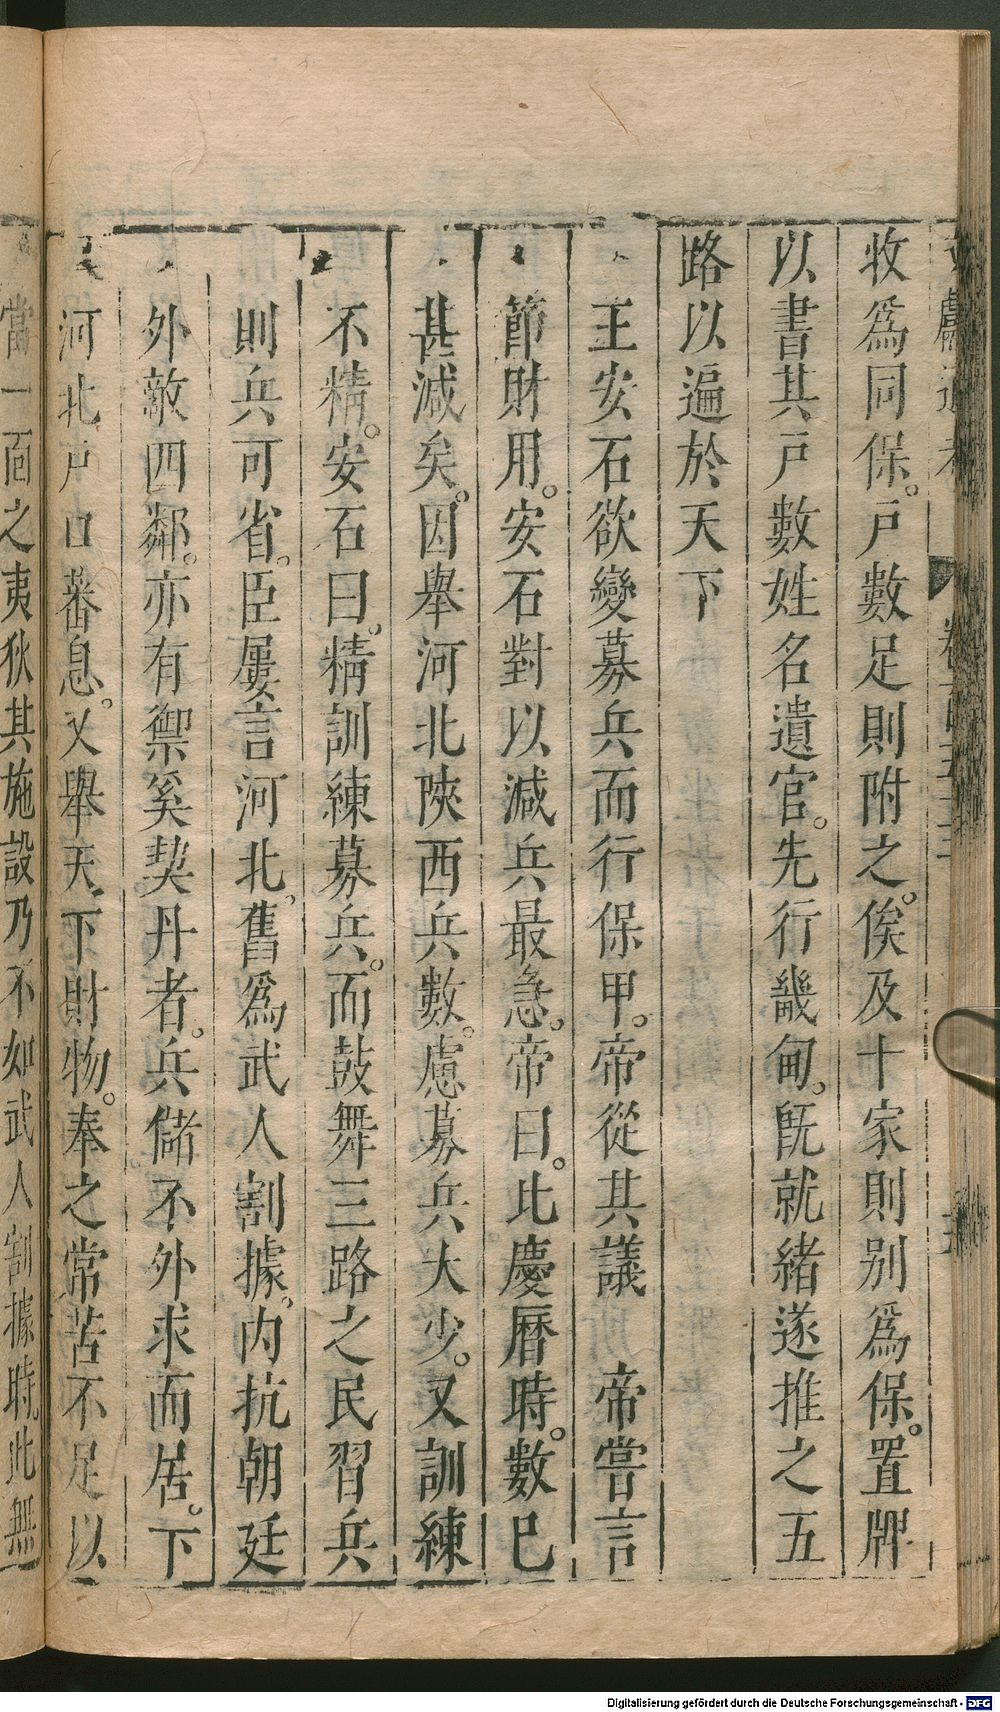 收爲同保。戸數足則附之。俟及十家則別爲保。置牌
以書其戸數姓名遺官。先行畿甸。旣就緒遂推之五
路以遍於天下
王安石欲變募兵而行保甲。帝從其議　帝嘗言
節財用。安石對以減兵最急。帝曰。比慶曆時。數已
甚減矣。因舉河北陝西兵數。慮募兵大少。又訓練
不精。安石曰。精訓練募兵。而鼓舞三路之民習兵
則兵可省。臣屢言河北。舊爲武人割據。内抗朝廷
外敵四鄰。亦有禦奚契丹者。兵儲不外求而居。下
河北戸口蕃息。又舉天下財物。奉之常苦不足以
當一面之夷狄其施設乃不如武人割據時。此無
Digitalisierung gefördert durch die Deutsche Forschungsgemeinschaft - DFG